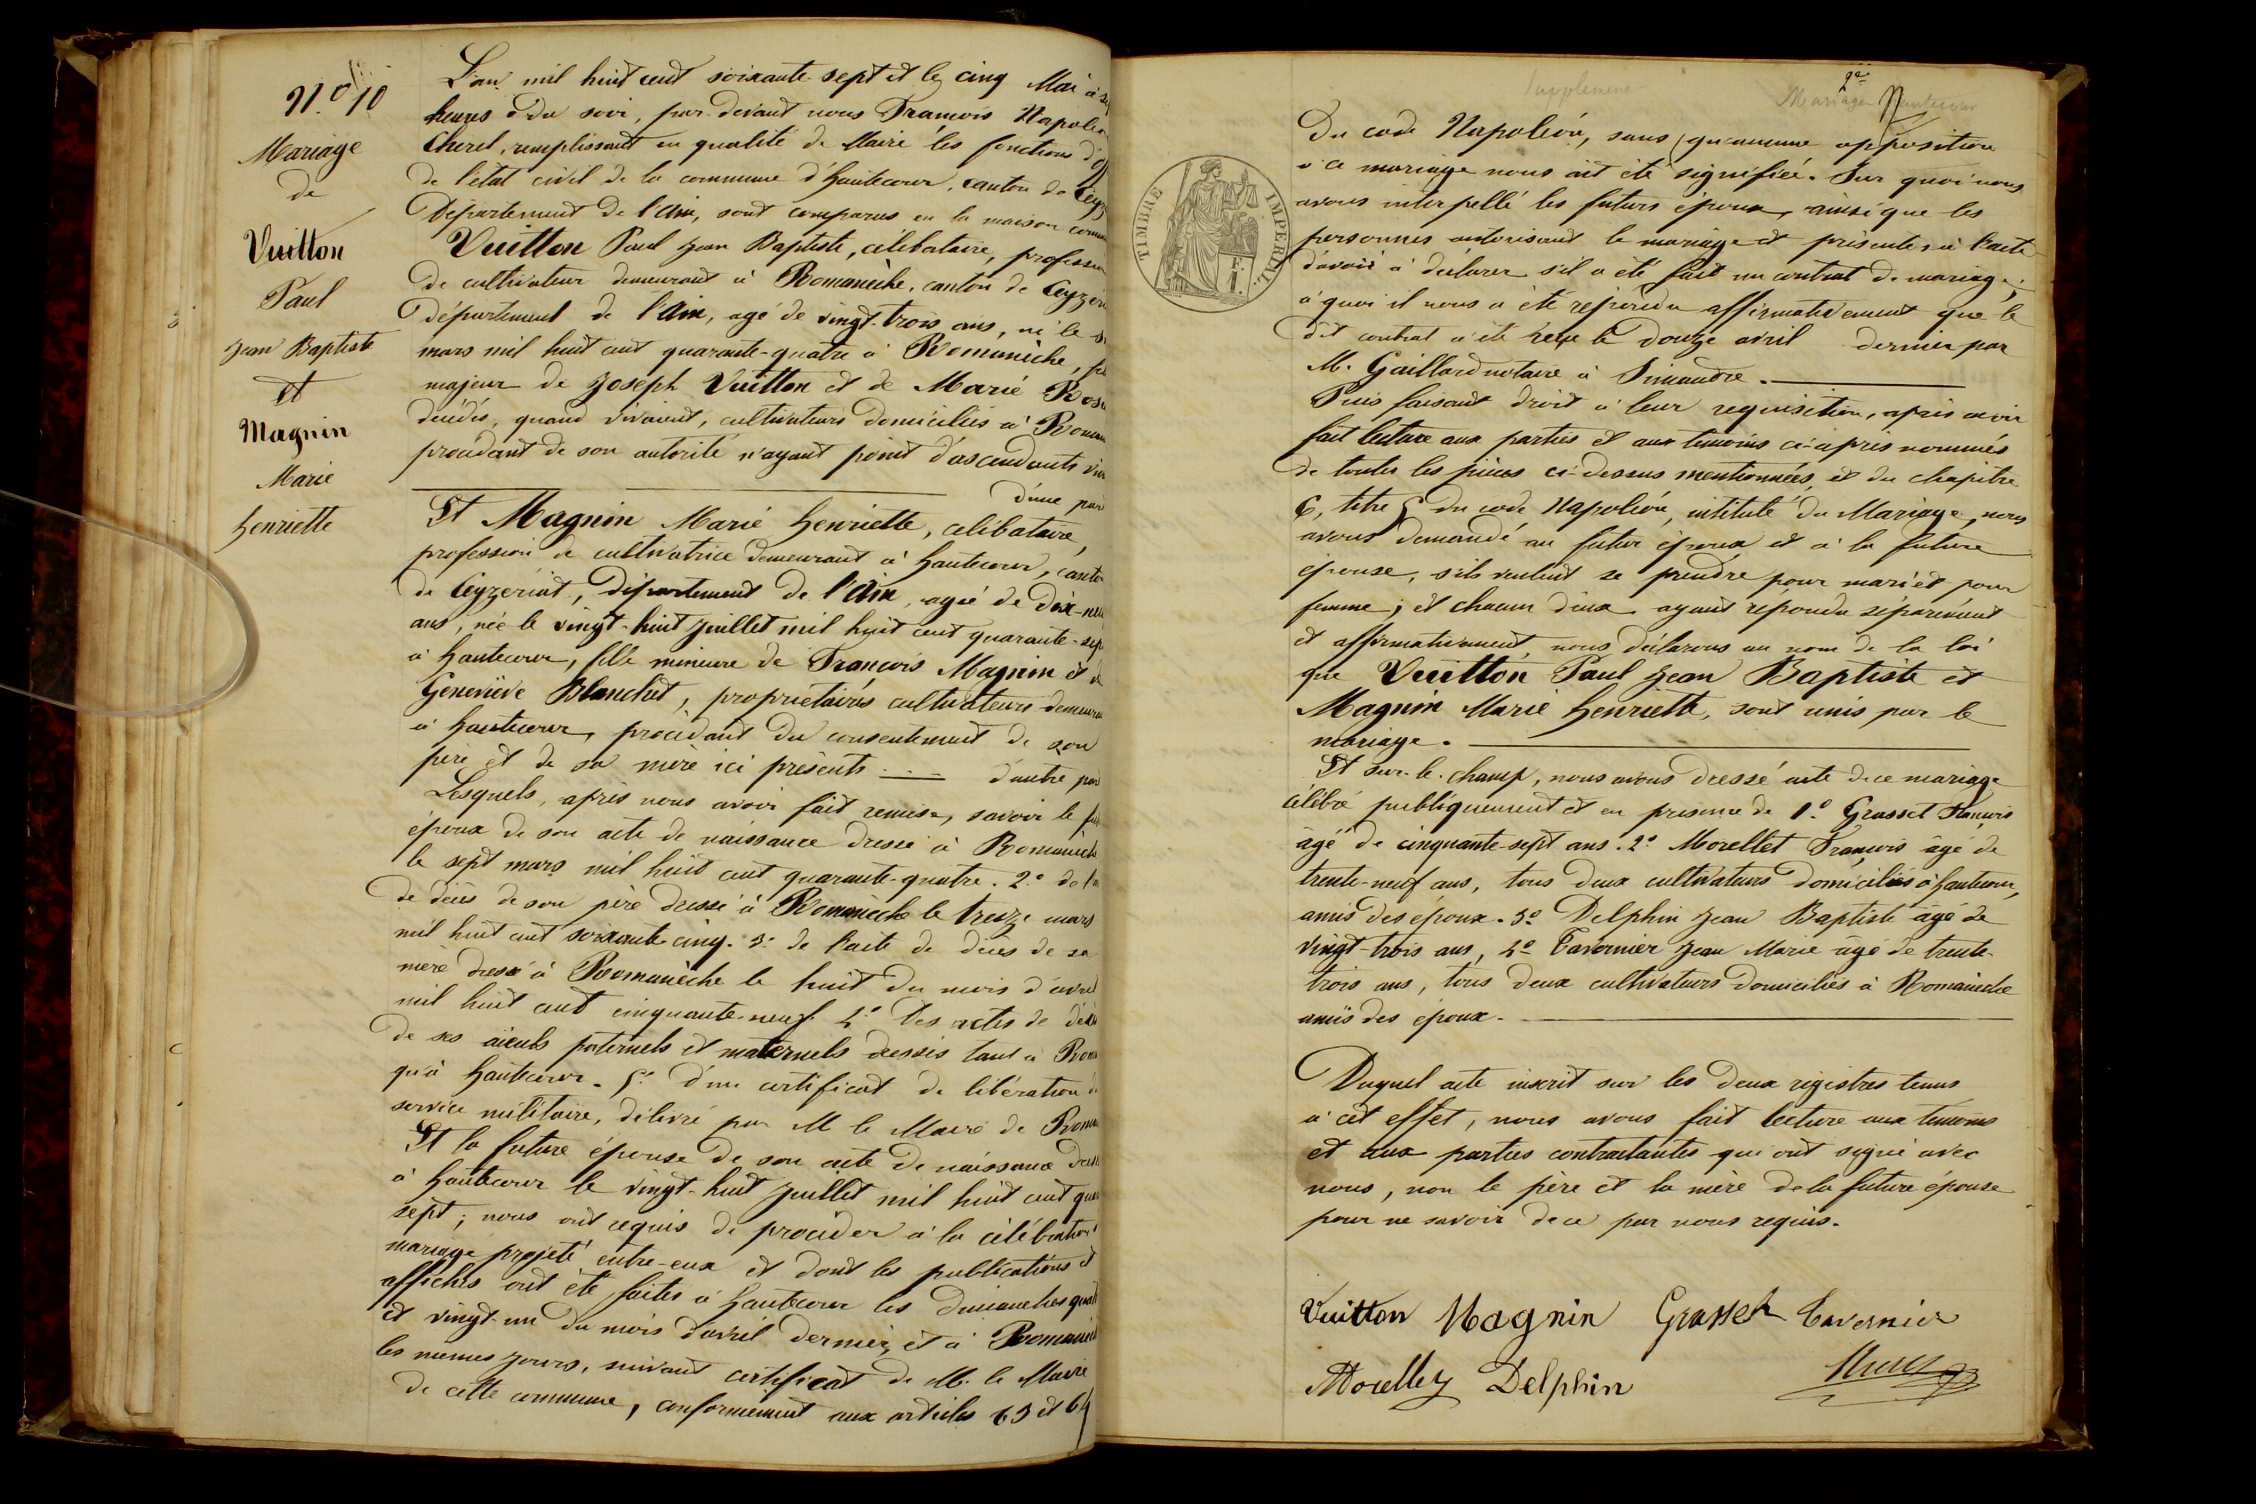 N.º 10
Mariage
de
Vuitton
Paul
Jean Baptiste
et
Magnin
Marie
henriette
L'an mil huit cent soixante sept et le cinq Mai à
heures du soir, par-devant nous François Napoléo
Cheret, remplissant en qualité de Maire les fonctions d'
de l'état civil de la commune d'hautecour, canton de Ceyz
Département de l'Ain, sont comparus en la maison commu
Vuitton Paul Jean Baptiste, célibataire, profession
de cultivateur demeurant à Romanèche, canton de Ceyzéri
département de l'Ain, agé de vingt-trois ans, né le
mars mil huit cent quarante-quatre à Romanèche, fil
majeur de Joseph Vuitton et de Marie Ros
décédés, quand vivaient, cultivateurs domiciliés à Roman
procédant de son autorité n'ayant point d'ascendants
d'une par
Et Magnin Marie henriette, célibataire,
profession de cultivatrice demeurant à hautecour, canton
de Ceyzériat, département de l'Ain, agée de dix-neu
ans, née le vingt-huit Juillet mil huit cent quarante-sep
à hautecour, fille mineure de François Magnin et d
Geneviève Blanchet, propriétaires cultivateurs demeura
à hautecour, procédant du consentement de son
père et de sa mère ici présents d'autre par
Lesquels, après nous avoir fait remise, savoir le fu
époux de son acte de naissance dressé à Romanèch
le sept mars mil huit cent quarante-quatre. 2º de l'a
de décès de son père dressé à Romanèche le treize mars
mil huit cent soixante cinq. 3º de l'acte de décès de sa
mère dressé à Romanèche le huit du mois d'avril
mil huit cent cinquante-neuf 4º des actes de décè
de ses aïeuls paternels et maternels dressés tant à Rom
qu'à hautecour. 5º d'un certificat de libération d
service militaire, délivré par M le Maire de Roma
Et la future épouse de son acte de naissance dres
à hautecour le vingt-huit Juillet mil huit cent quar
sept; nous ont requis de procéder à la célébration
mariage projeté entre-eux et dont les publications et
affiches ont été faites à hautecour les dimanches quat
et vingt-un du mois d'avril dernier, et à Romanèch
les mêmes jours, suivant certificat de M. le Maire
de cette commune, conformément aux articles 63 et 64
Supplément
2e
Mariages hautecour
TIMBRE IMPÉRIAL.
Du code Napoléon, sans qu'aucune opposition
à ce mariage nous ait été signifiée. Sur quoi nous
avons interpellé les futurs époux, ainsi que les
personnes autorisant le mariage et présentes à l'acte
d'avoir à déclarer s'il a été fait un contrat de mariage;
à quoi il nous a été répondu affirmativement que le
dit contrat a été reçu le douze avril dernier par
M. Gaillard notaire à Simandre.
Puis faisant droit à leur réquisition, après avoir
fait lecture aux parties et aux témoins ci-après nommés
de toutes les pièces ci-dessus mentionnées, et du chapitre
6, titre 5 du code Napoléon, intitulé du Mariage, nous
avons demandé au futur époux et à la future
épouse, s'ils veulent se prendre pour mari et pour
femme; et chacun d'eux ayant répondu séparément
et affirmativement, nous déclarons au nom de la loi
que Vuitton Paul Jean Baptiste et
Magnin Marie henriette, sont unis par le
mariage.
Et sur-le-champ, nous avons dressé acte de ce mariage
célébré publiquement et en présence de 1º Grasset François
âgé de cinquante-sept ans. 2º Morellet François âgé de
trente-neuf ans, tous deux cultivateurs domiciliés à hautecour,
amis des époux. 3º Delphin Jean Baptiste âgé de
vingt-trois ans, 4º Tavernier Jean Marie âgé de trente-
trois ans, tous deux cultivateurs domiciliés à Romanèche
amis des époux.
Duquel acte inscrit sur les deux registres tenus
à cet effet, nous avons fait lecture aux témoins
et aux parties contractantes qui ont signé avec
nous, non le père et la mère de la future épouse
pour ne savoir de ce par nous requis.
Vuitton Magnin Grasset Tavernier
Morellet Delphin